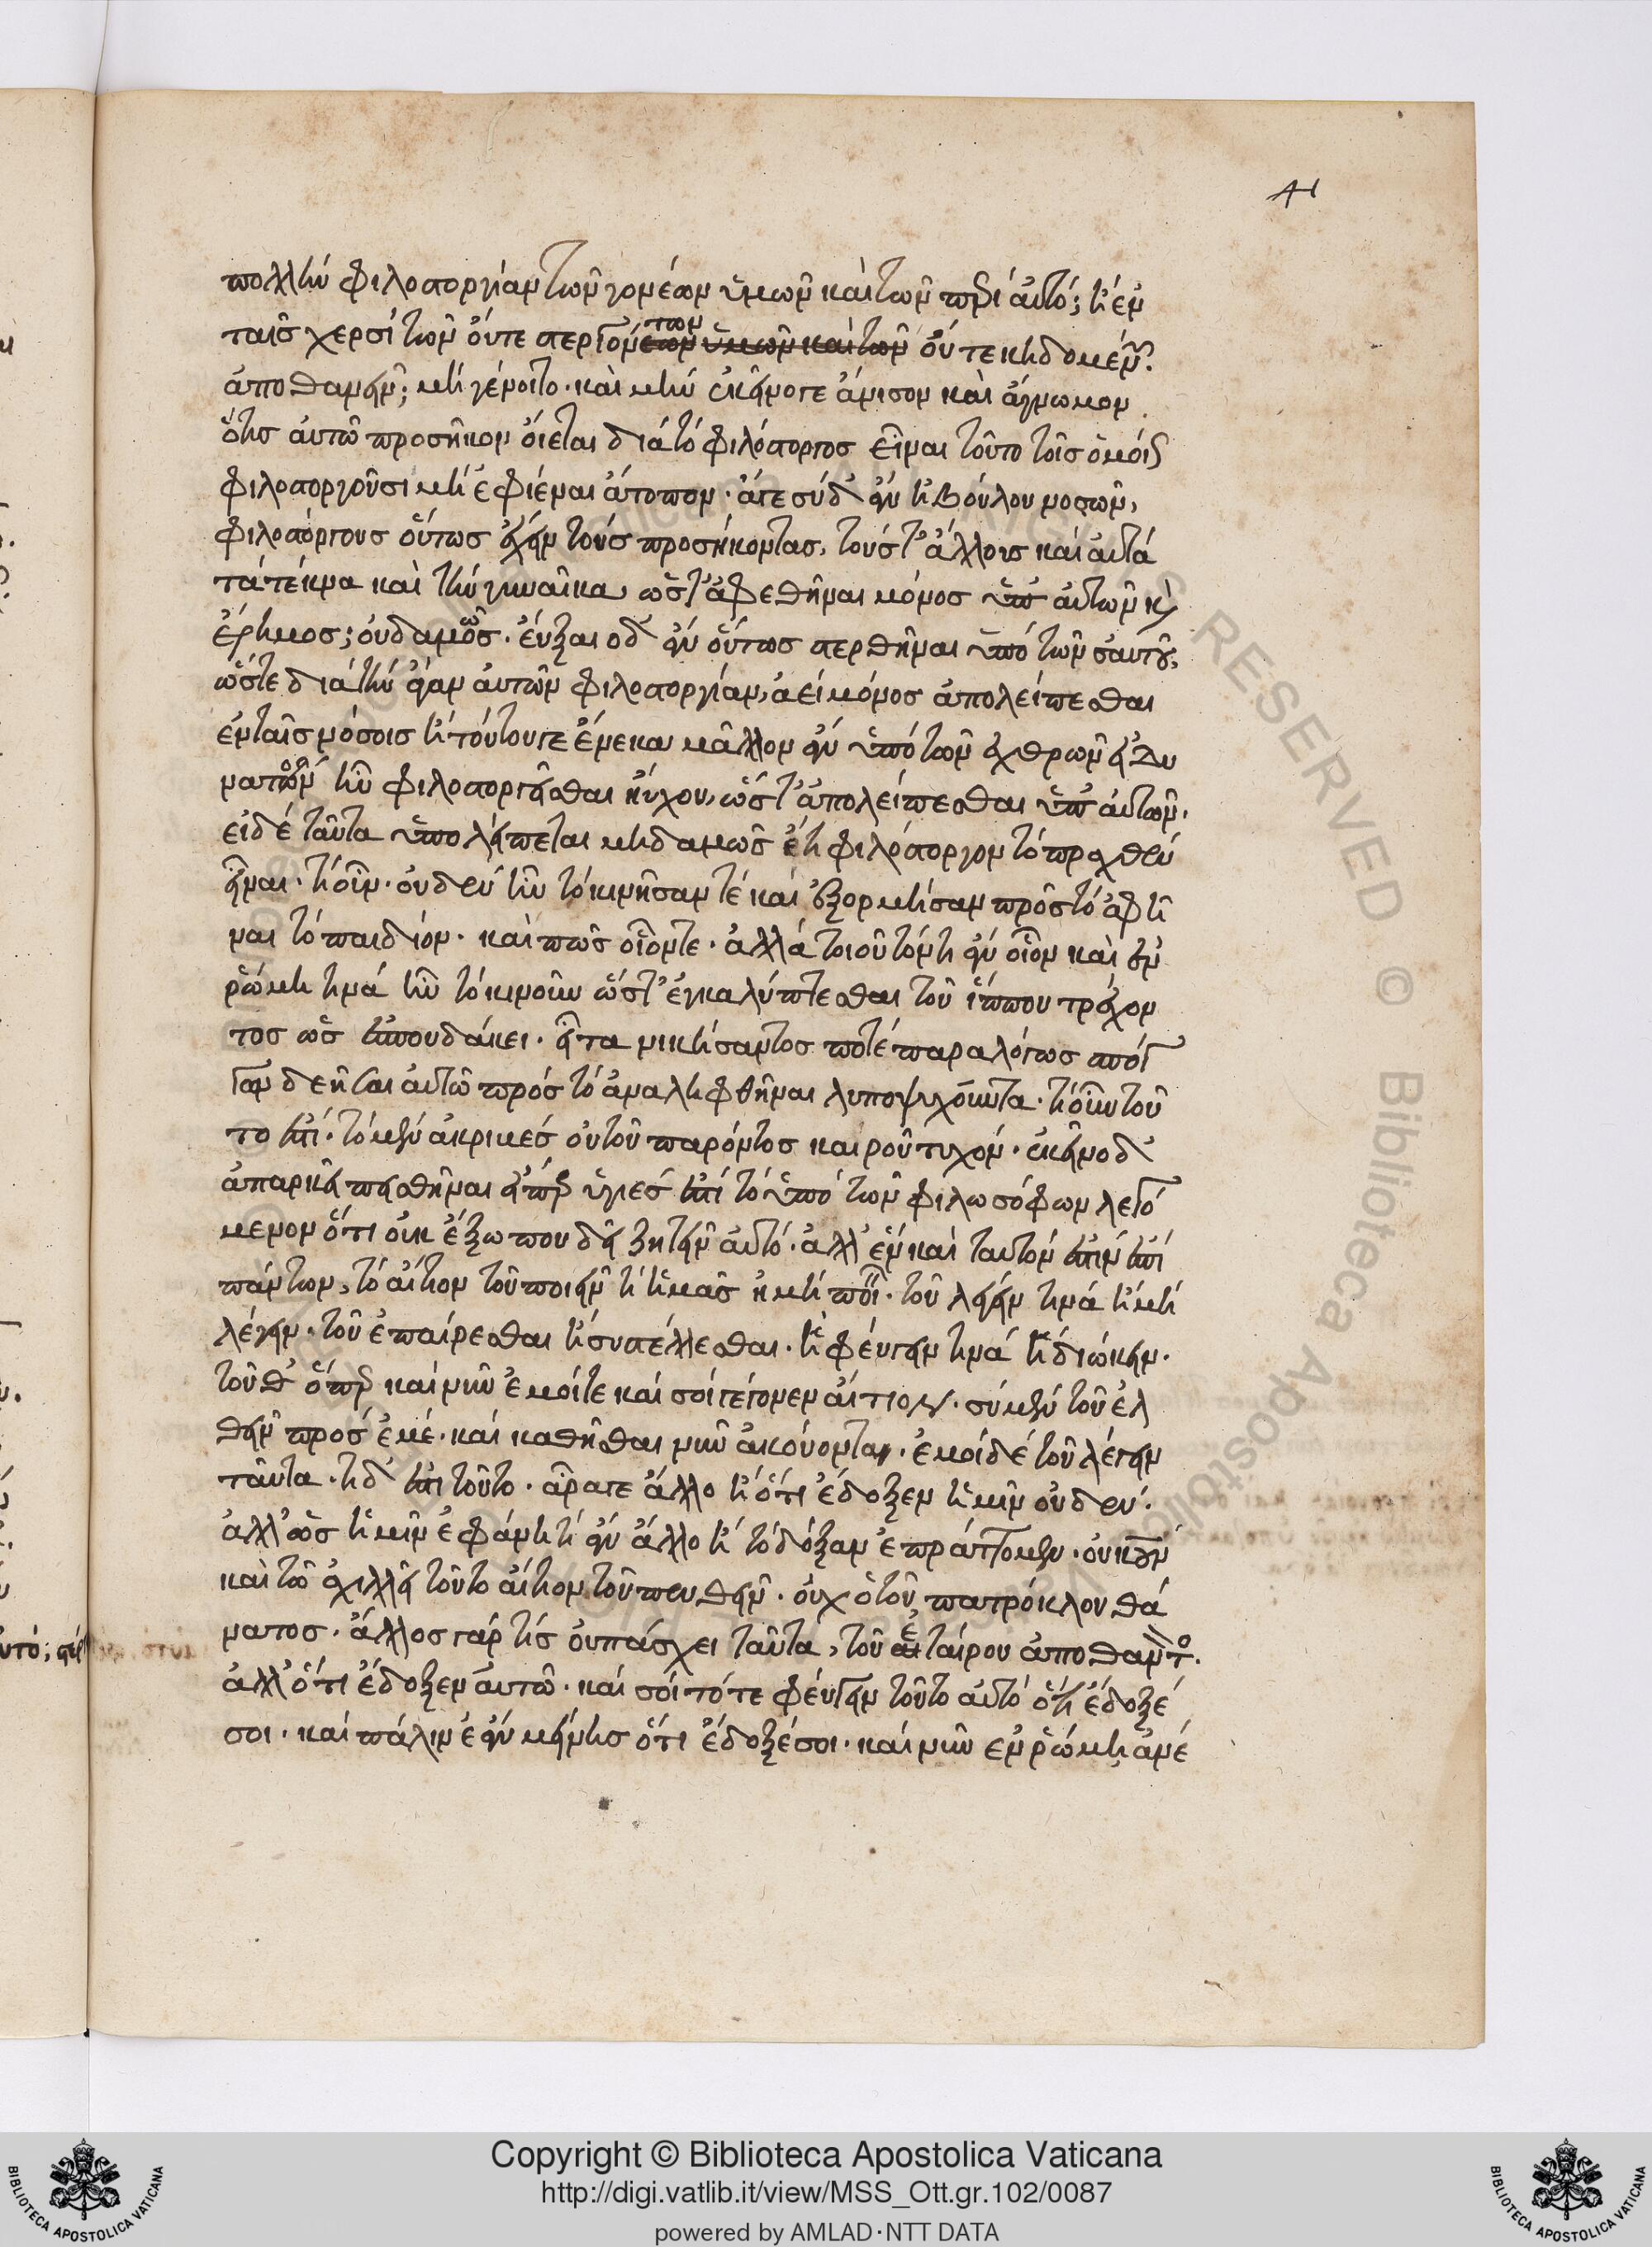 πολλὴν φιλοστοργίαν τῶν γονέων ὑμῶν καὶ τῶν περὶ αὐτό; ἢ ἐν
ταῖς χερσὶ τῶν οὔτε στεργόντων ὑμῶν καὶ τῶν οὔτε κηδομένων
ἀποθανεῖν; μὴ γένοιτο· καὶ μὴν ἐκεῖνό γε ἄνισον καὶ ἄγνωμον
ὅτις αὐτῶ προσῆκον οἴεται διὰ τὸ φιλόστοργος εἶναι τοῦτο τοῖς ὁμοίως
φιλοστοργοῦσι μὴ ἐφιέναι ἄτοπον· ἄγε σὺ δ' ἂν ἠβούλου νοσῶν,
φιλοστόργους οὕτως ἔχειν τοὺς προσήκοντας, τούς τ' ἄλλους καὶ αὐτὰ
τὰ τέκνα καὶ τὴν γυναῖκα ὥστ' ἀφεθῆναι μόνος ὑπ' αὐτῶν καὶ
ἔρημος; οὐδαμῶς· εὔξαιο δ' ἂν οὕτως στερθῆναι ὑπὸ τῶν σαυτοῦ,
ὥστε διὰ τὴν ἄγαν αὐτῶν φιλοστοργίαν, ἀεὶ μόνος ἀπολείπεσθαι
ἐν ταῖς νόσοις ἢ τούτου γε ἕνεκα μᾶλλον ἂν ὑπὸ τῶν ἐχθρῶν εἰ δυ
νατὸν ἦν φιλοστοργεῖσθαι ηὔχου, ὥστ' ἀπολείπεσθαι ὑπ' αὐτῶν·
εἰ δὲ ταῦτα ὑπολείπεται μηδαμῶς ἔτι φιλόστοργον τὸ πραχθὲν
εἶναι· τί οὖν· οὐδὲν ἦν τὸ κινῆσάν τε καὶ ἐξορμῆσαν πρὸς τὸ ἀφεῖ
ναι τὸ παιδίον· καὶ πῶς οἷόν τε· ἀλλὰ τοιοῦτόν τι ἂν οἷον καὶ ἐν
ῥώμη τινὰ ἦν τὸ κινοῦν ὥστ' ἐγκαλύπτεσθαι τοῦ ἵππου τρέχον
τος ὡς ἐσπουδάκει· εἶτα νικήσαντος ποτὲ παραλόγως σπόγ
γων δεῆσαι αὐτῶ πρὸς τὸ ἀναληφθῆναι λιποψυχοῦντα· τί οὖν τοῦ
το ἐστί· τὸ μὲν ἀκριβὲς οὐ τοῦ παρόντος καιροῦ τυχόν· ἐκεῖνο δ'
ἀπαρκεῖ πεισθῆναι εἴπερ ὑγιές ἐστι τὸ ὑπὸ τῶν φιλωσόφων λεγό
μενον ὅτι οὐκ ἔξω που δεῖ ζητεῖν αὐτό· ἀλλ' ἓν καὶ ταυτόν ἐστιν ἐπὶ
πάντων, τὸ αἴτιον τοῦ ποιεῖν τι ἡμᾶς ἢ μὴ ποιεῖν· τοῦ λέγειν τινὰ ἢ μὴ
λέγειν· τοῦ ἐπαίρεσθαι ἢ συστέλλεσθαι· ἢ φεύγειν τινὰ ἢ διώκειν·
τοῦθ' ὅπερ καὶ νῦν ἐμοί τε καὶ σοὶ γέγονεν αἴτιον· σὺ μὲν τοῦ ἐλ
θεῖν πρὸς ἐμέ· καὶ καθῆσθαι νῦν ἀκούοντα, ἐμοὶ δὲ τοῦ λέγειν
ταῦτα· τί δ' ἐστι τοῦτο· ἆρά γε ἄλλο ἢ ὅτι ἔδοξεν ἡμῖν οὐδέν·
ἀλλ' ὡς ἡμῖν ἐφάνη τί ἂν ἄλλο ἢ τὸ δόξαν ἐπράττομεν· οὐκοῦν
καὶ τῶ ἀχιλλεῖ τοῦτο αἴτιον τοῦ πενθεῖν· οὐχ ὁ τοῦ πατρόκλου θά
νατος· ἄλλος γάρ τις οὐ πάσχει ταῦτα, τοῦ ἑταίρου ἀποθανόντος·
ἀλλ' ὅτι ἔδοξεν αὐτῶ· καὶ σοὶ τότε φεύγειν τοῦτο αὐτὸ ὅτι ἔδοξέ
σοι· καὶ πάλιν ἐὰν μείνης ὅτι ἔδοξέ σοι· καὶ νῦν ἐν ῥώμη ἀνέ
41
Copyright © Biblioteca Apostolica Vaticana
http://digi.vatlib.it/view/MSS_Ott.gr.102/0087
powered by AMLAD·NTT DATA